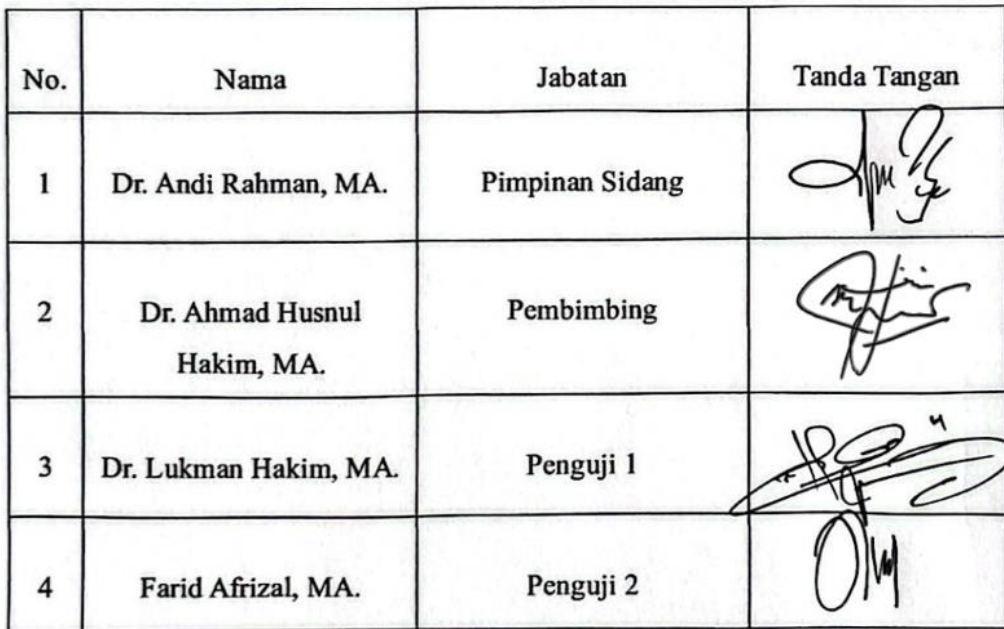 No. Nama Jabatan Tanda Tangan
1 Dr. Andi Rahman, MA. Pimpinan Sidang
2 Dr. Ahmad Husnul Pembimbing
Hakim, MA.
3 Dr. Lukman Hakim, MA. Penguji 1
4 Farid Afrizal, MA. Penguji 2